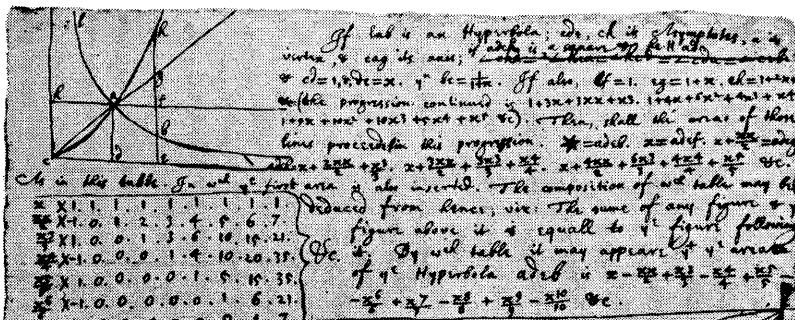 If eab is an Hyperbola; cde, ch its Asymptotes, a its
vertex, & cag its axis; if adck is a square & he ∥ ad
& cd=1, & de=x. yⁿ be=1/1+x. If also, lf=1. eg=1+x. eh=1+2x+xx
(the progression continued is 1+3x+3xx+x3. 1+4x+6x²+4x3+x4
1+5x+10x²+10x3+5x4+x5 &c). Then, shall the areas of those
lines proceed in this progression. =adeb. x=adef. x+xx/2=adeg
x+2xx/2+x3/3. x+3xx/2+3x3/3+x4/4. x+4xx/2+6x3/3+4x4/4+x5/5 &c.
As in this table. In wch ye first area is also inserted. The composition of wch table may be
deduced from hence, viz: The sume of any figure & ye
figure above it is equall to ye figure following
it. By wch table it may appeare yt ye area
of ye Hyperbola adeb is x-xx/2+x3/3-x4/4+x5/5
-x6/6+x7/7-x8/8+x9/9-x10/10 &c.
x X 1. 1. 1. 1. 1. 1. 1. 1.
xx/2 X-1. 0. 1. 2. 3. 4. 5. 6. 7.
x3/3 X 1. 0. 0. 1. 3. 6. 10. 15. 21.
x4/4 X-1. 0. 0. 0. 1. 4. 10. 20. 35. &c.
x5/5 X 1. 0. 0. 0. 0. 1. 5. 15. 35.
x6/6 X-1. 0. 0. 0. 0. 0. 1. 6. 21.